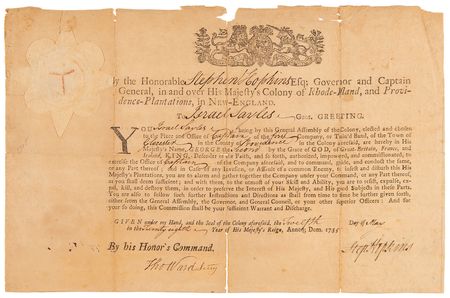 By the Honorable Stephen Hopkins Esq; Governor and Captain
General, in and over His Majesty's Colony of Rhode-Island, and Provi-
dence-Plantations, in New-England.
To Israel Sayles Gent. Greeting.
YOU Israel Sayles being by this General Assembly of the Colony, elected and chosen
to the Place and Office of Captain of the Company, or Train'd Band, of the Town
in the County Providence in the Colony aforesaid, are hereby in His
Majesty's Name, GEORGE the Second by the Grace of GOD, of Great-Britain, France, and
Ireland, KING, Defender of the Faith, and so forth, authorized, impowered, and commissionated, to
exercise the Office of Captain of the Company aforesaid, and to command, guide, and conduct the same,
or any Part thereof; and in Case of any Invasion, or Assault of a common Enemy, to infest and disturb this His
Majesty's Plantations, you are to alarm and gather together the Company under your Command, or any Part thereof,
as you shall and with them, to the utmost of your Skill and Ability, you are to resist, expulse,
expel, kill, and destroy them, in order to preserve the Interest of His Majesty, and His good Subjects in these Parts.
You are also to follow such further Instructions and Directions as shall from time to time be further given forth,
either from the General Assembly, the Governor, and General Council, or your other superior Officers: And for
your so doing, this Commission shall be your sufficient Warrant and Discharge.
GIVEN under my Hand, and the Seal of the Colony aforesaid, the Twelfth Day of May
in the Twenty eighth Year of His Majesty's Reign, Annoq; Dom. 1755
By his Honor's Command. Step Hopkins
Tho Ward Secry